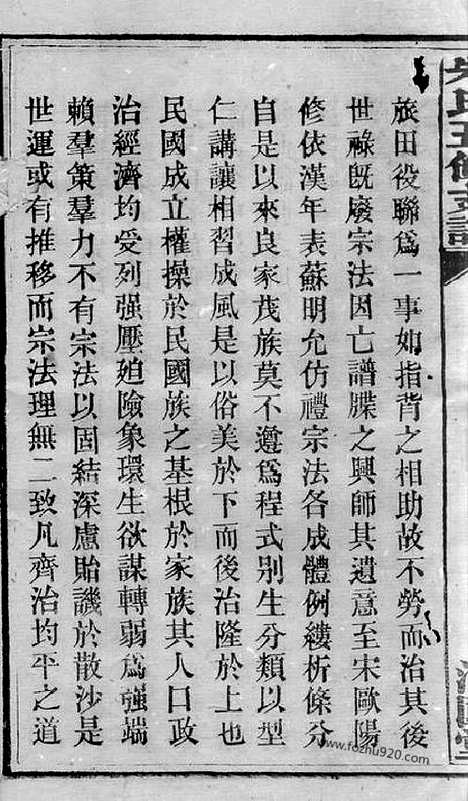 旅田役聯爲一事如指背之相助故不勞而治其後
世祿既廢宗法因亡譜牒之興師其遺意至宋歐陽
修依漢年表蘇明允仿禮宗法各成體例縷析條分
自是以來良家茂族莫不遵爲程式別生分類以型
仁講讓相習成風是以俗美於下而後治隆於上也
民國成立權操於民國族之基根於家族其人口政
治經濟均受列强壓廹險象環生欲謀轉弱爲强端
賴羣策羣力不有宗法以固結深慮貽譏於散沙是
世運或有推移而宗法理無二致凡齊治均平之道
氏五修支譜
www.fozhu920.com